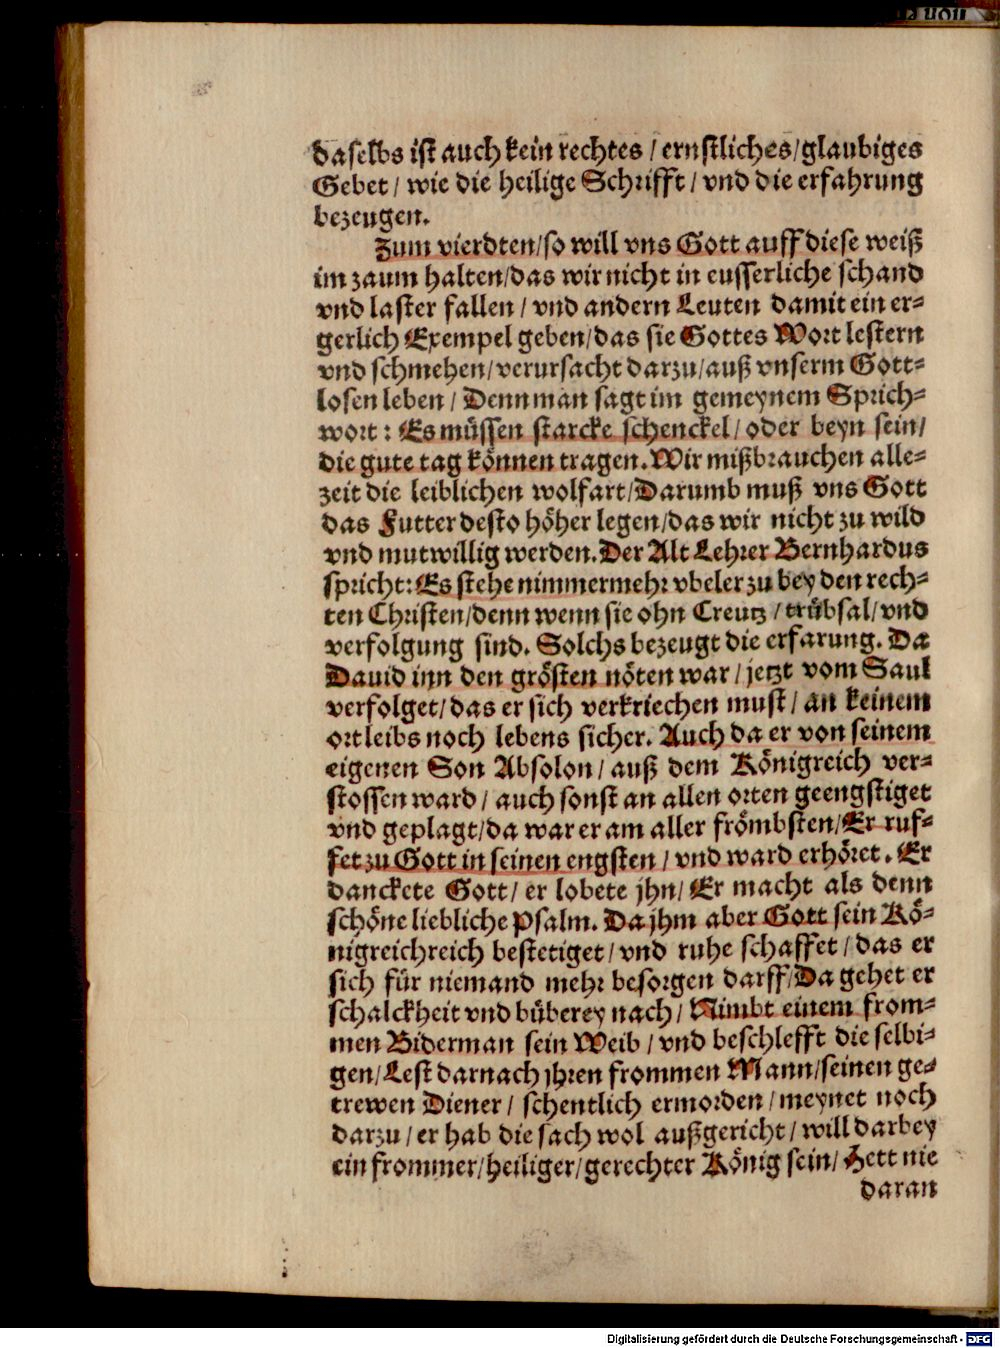 daselbs ist auch kein rechtes / ernstliches/glaubiges
Gebet / wie die heilige Schrifft / vnd die erfahrung
bezeugen.
Zum vierdten/so will vns Gott auff diese weiß
im zaum halten/das wir nicht in eusserliche schand
vnd laster fallen / vnd andern Leuten damit ein er-
gerlich Exempel geben/das sie Gottes Wort lestern
vnd schmehen/verursacht darzu/auß vnserm Gott-
losen leben / Denn man sagt im gemeynem Sprich-
wort : Es müssen starcke schenckel/ oder beyn sein/
die gute tag können tragen. Wir mißbrauchen alle-
zeit die leiblichen wolfart/Darumb muß vns Gott
das Futter desto höher legen/das wir nicht zu wild
vnd mutwillig werden. Der Alt Lehrer Bernhardus
spricht: Es stehe nimmermehr vbeler zu bey den rech-
ten Christen/denn wenn sie ohn Creutz / trübsal/ vnd
verfolgung sind. Solchs bezeugt die erfarung. Da
Dauid inn den grösten nöten war / jetzt vom Saul
verfolget/das er sich verkriechen must / an keinem
ort leibs noch lebens sicher. Auch da er von seinem
eigenen Son Absolon / auß dem Königreich ver-
stossen ward / auch sonst an allen orten geengstiget
vnd geplagt/da war er am aller frömbsten/Er ruf-
fet zu Gott in seinen engsten / vnd ward erhöret. Er
danckete Gott / er lobete jhn/ Er macht als denn
schöne liebliche Psalm. Da jhm aber Gott sein Kö-
nigreichreich bestetiget / vnd ruhe schaffet / das er
sich für niemand mehr besorgen darff/Da gehet er
schalckheit vnd büberey nach/ Nimbt einem from-
men Biderman sein Weib / vnd beschlefft die selbi-
gen/Lest darnach jhren frommen Mann/seinen ge-
trewen Diener / schentlich ermorden / meynet noch
darzu / er hab die sach wol außgericht / will darbey
ein frommer/heiliger/gerechter König sein/ Hett nie
daran
Digitalisierung gefördert durch die Deutsche Forschungsgemeinschaft - DFG